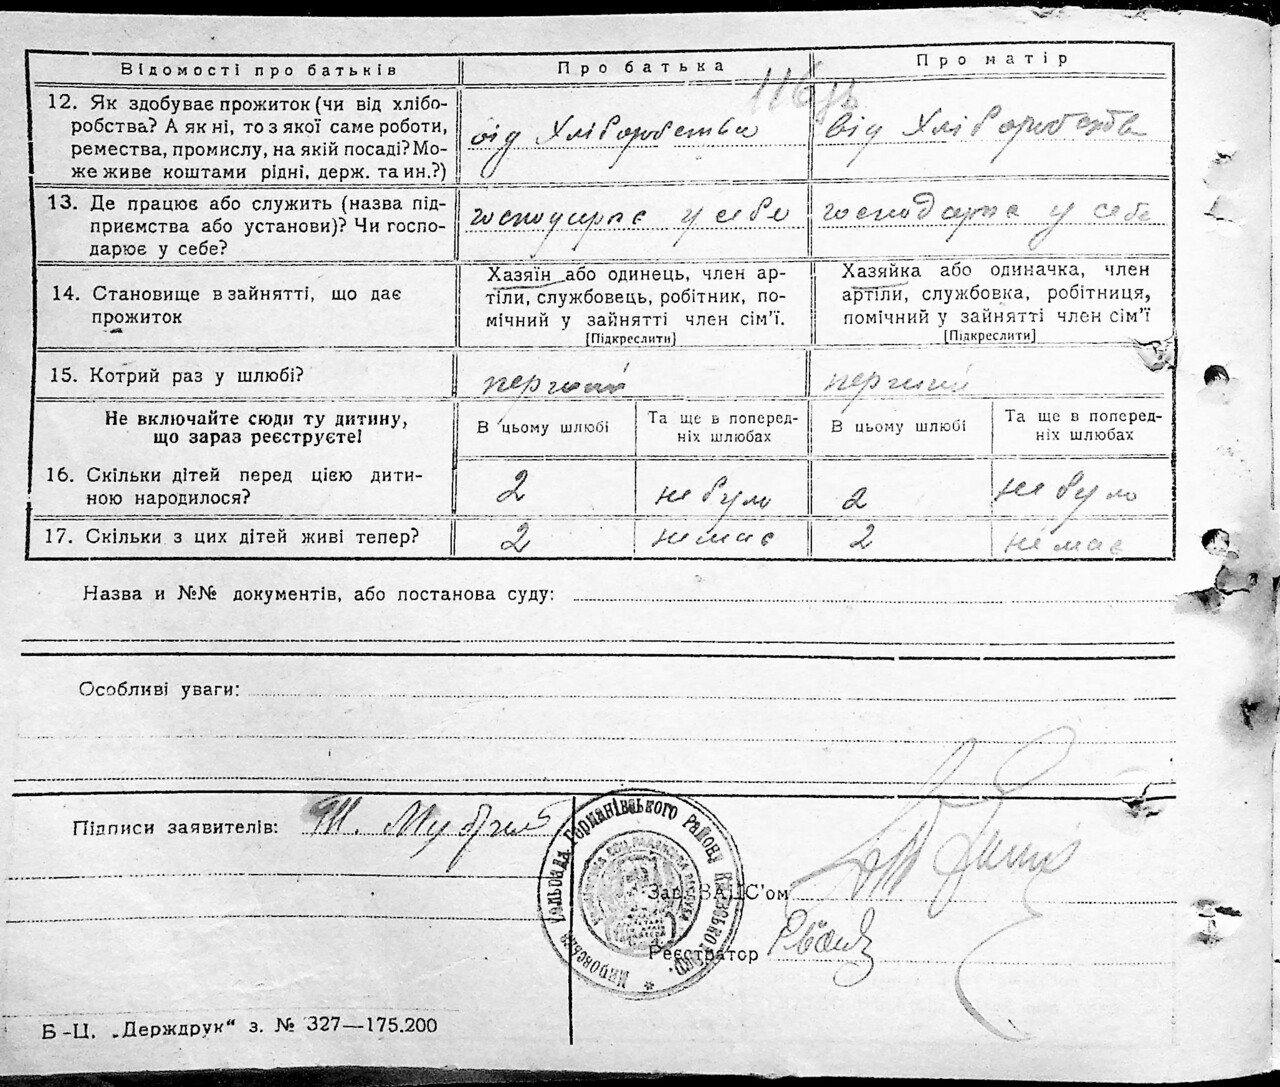 Відомості про батьків
Про батька
Про матір
116 зв
12. Як здобуває прожиток (чи від хлібо-
робства? А як ні, то з якої саме роботи,
ремества, промислу, на якій посаді? Мо-
же живе коштами рідні, держ. та ин.?)
від Хліборобства
від Хліборобства
13. Де працює або служить (назва під-
приємства або установи)? Чи госпо-
дарює у себе?
господарює у себе
господарює у себе
14. Становище в зайнятті, що дає
прожиток
Хазяїн або одинець, член ар-
тіли, службовець, робітник, по-
мічний у зайнятті член сім'ї.
[Підкреслити]
Хазяйка або одиначка, член
артіли, службовка, робітниця,
помічний у зайнятті член сім'ї
[Підкреслити]
15. Котрий раз у шлюбі?
перший
перший
Не включайте сюди ту дитину,
що зараз реєструєте!
В цьому шлюбі
Та ще в поперед-
ніх шлюбах
В цьому шлюбі
Та ще в поперед-
ніх шлюбах
16. Скільки дітей перед цією дити-
ною народилося?
2
не було
2
не було
17. Скільки з цих дітей живі тепер?
2
немає
2
немає
Назва и №№ документів, або постанова суду:
Особливі уваги:
Підписи заявителів:
Мировська Сельрада Германівського Району
Зав. ЗАГС'ом
Реєстратор
Б-Ц. „Держдрук“ з. № 327—175.200